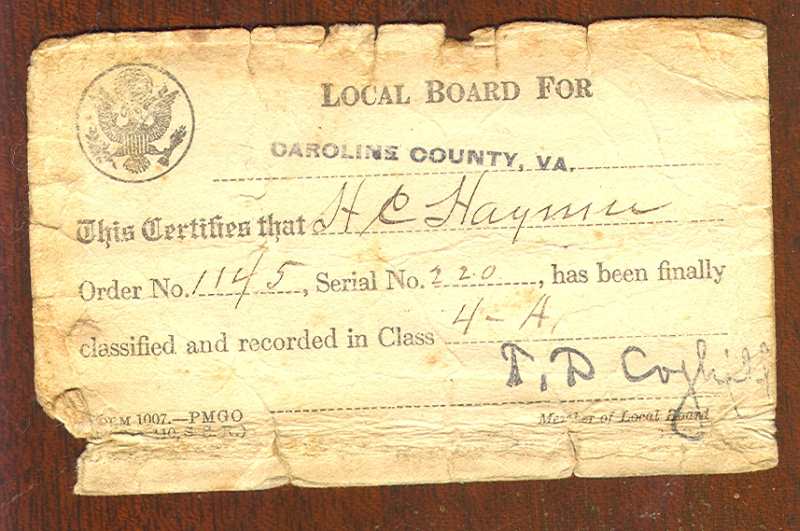 LOCAL BOARD FOR
CAROLINE COUNTY, VA.
This Certifies that H C Haynie
Order No. 1145, Serial No. 220, has been finally
classified and recorded in Class 4-A.
T. D Coghill
1007.—PMGO
Member of Local Board
S. S. R.)